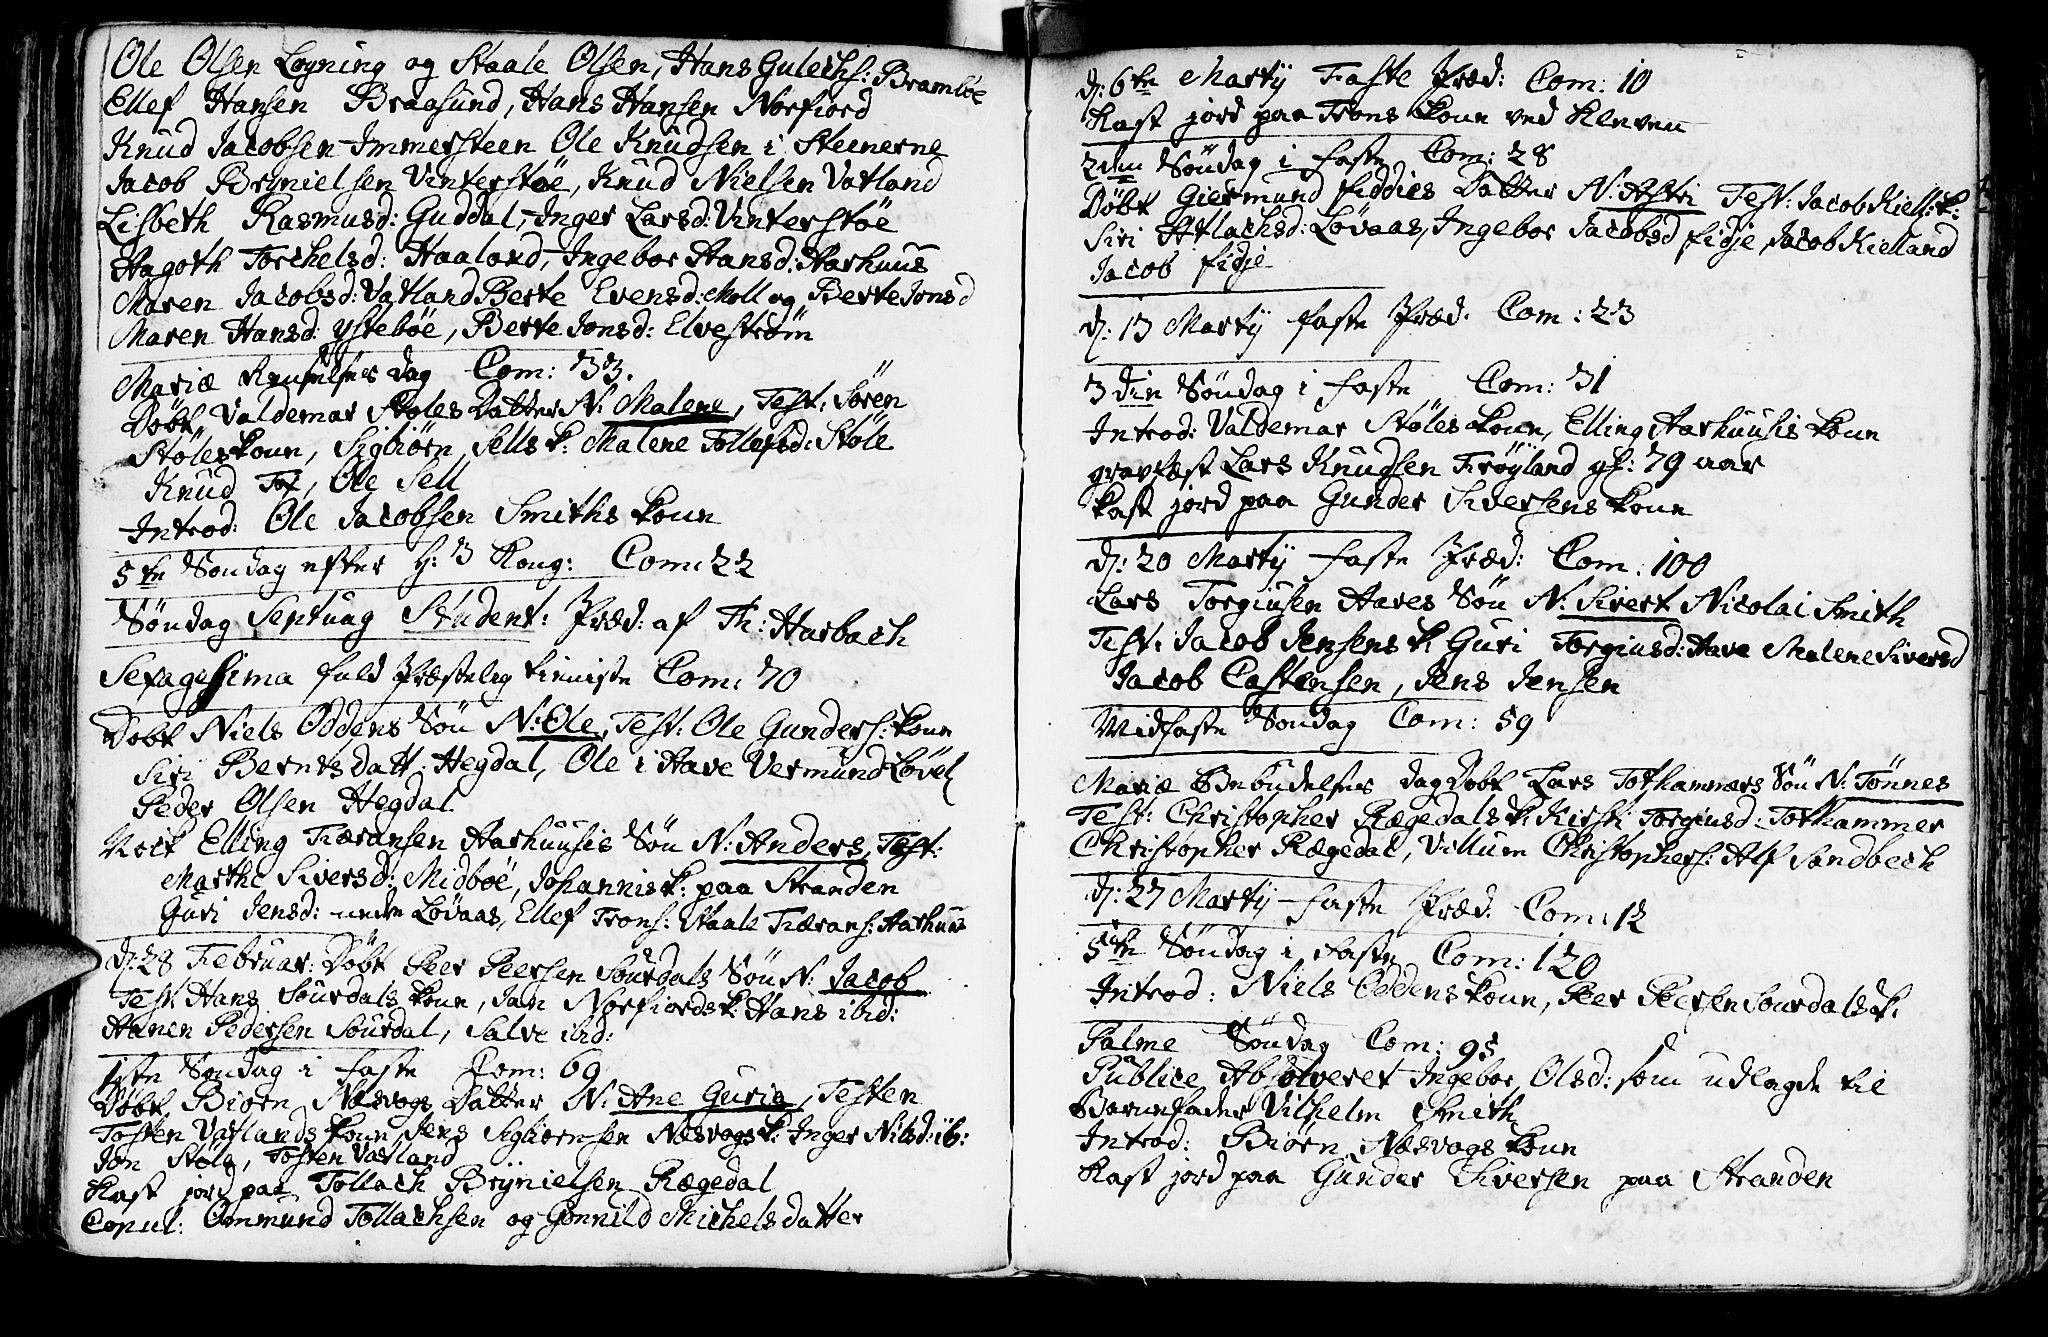 Ole Olsen Løyning og Staale Olsen, Hans Gulechs: Bramböe
Ellef Hansen Braasund, Hans Hansen Norfiord
Knud Jacobsen Immersteen Ole Knudsen i Steenerne
Jacob Brynielsen Vinterstöe, Knud Nielsen Vatland
Lisbeth Rasmusd: Guddal, Inger Larsd: Vinterstöe
Aagoth Torchelsd: Haaland, Ingebor Hansd: Aarhuus
Maren Jacobsd: Vatland Berte Evensd: Moll og Berte Jonsd
Maren Hansd: ÿsteböe, Berte Jonsd: Elvestrøm
Mariæ Renselses dag Com: 33.
Döbt Valdemar Støles Datter N: Malene, Test: Sören
Støles kone, Sigbiörn Sells k: Malene Tollefsd: Støle
Knud Tof, Ole Sell
Introd: Ole Jacobsen Smiths kone
5te Søndag efter H: 3 Kong: Com: 22
Søndag Septuag Student: Præd: af Th: Harbach
Sexagesima fuld Præstelig tieniste Com: 70
Dobt Niels Oddens Søn N: Ole, Test: Ole Gunders: kone
Siri Berntsdatt. Hegdal, Ole i Have Vermund Løvel
Peder Olsen Hegdal
Nock Elling Tieransen Aarhuusis Søn N: Anders, Test:
Marthe Siversd: Midböe, Johannis k: paa Stranden
Guri Jensd: neden Lövaas, Ellef Trons: Staale Tierans: Aarhuus
d: 28 Februar: Döbt Peer Peersen Sourdals Søn N: Jacob
Test: Hans Sourdals kone, Jan Norfiords k: Hans ibid:
Hanen Pedersen Sourdal, Salve ibid:
1ste Søndag i faste Com: 69
Döbt Biörn Næsvogs Datter N: Ane Guria, Testen
Tosten Vatlands kone, Jens Sigbiornsen Næsvogs k: Inger Nilsd: ib:
Jon Støle, Tosten Vatland
Kast jord paa Tollach Brÿnielsen Rægedal
Copul: Ommund Tollachsen og Gonnild Michelsdatter
d: 6te Martÿ Faste Præd: Com: 10
Kast jord paa Trons kone ved Kleven
2den Søndag i faste Com: 28
Döbt Giermund fiddies Datter N: Astri Test: Jacob Kiell: k:
Siri Atlachsd: Lövaas, Ingebor Jacobsd fidje, Jacob Kielland
Jacob fidje
d: 13 Martÿ faste Præd. Com: 23
3die Søndag i faste Com: 31
Introd: Valdemar Støles kone, Elling Aarhuusis kone
gravfæst Lars Knudsen Frøyland gl: 79 aar
kast jord paa Gunder Siversens kone
d: 20 Martÿ faste Præd: Com: 100
Lars Torgiusen Haves Søn N: Sivert Nicolai Smith
Test: Jacob Jensens k: Guri Torgiusd: Have Malene Siversd
Jacob Castensen, Jens Jensen
Midfaste Søndag Com: 59
Mariæ Bebudelses dag Dobt Lars Tothammers Søn N: Tönnes
Test: Christopher Rægedals k: Kirsti Torgiusd: Tothammer
Christopher Rægedal, Villum Christophers: Alf Sandbech
d: 27 Martÿ faste Præd. Com: 12
5te Søndag i faste Com: 120
Introd: Niels Oddens kone, Peer Peersen Sourdals k:
Palme Søndag Com: 95
Publice Absolveret Ingebor Olsd: som udlagde til
Barnefader Vilhelm Smith
Introd: Biørn Næsvogs kone
Kast jord paa Gunder Siversen paa Stranden